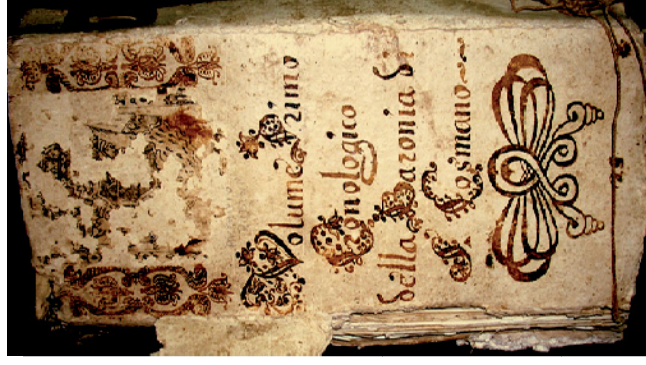 Volume Primo
Cronologico
della Baronia di
S. Cosimano